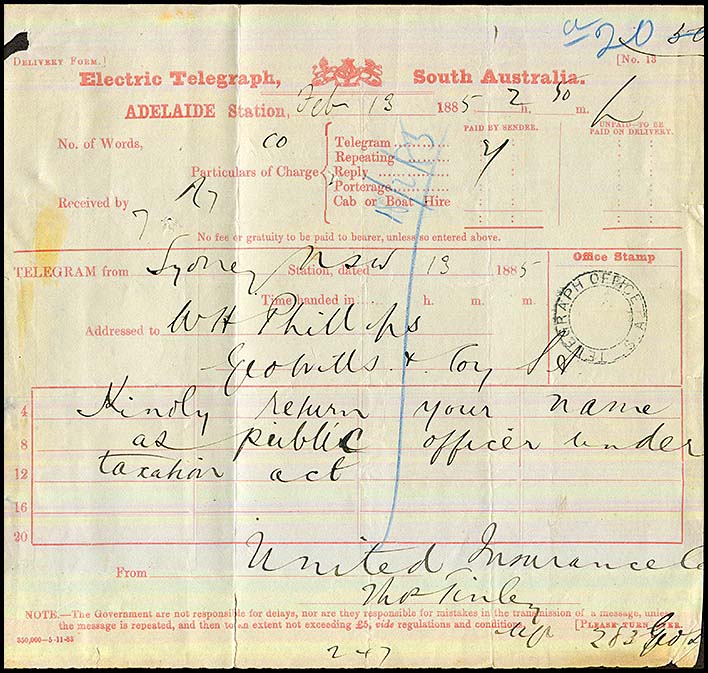 a 20 50
DELIVERY FORM.] [No. 13
Electric Telegraph, South Australia.
ADELAIDE Station, Feb 13 1885 2 h. 50 m.
No. of Words, CO
Particulars of Charge
Telegram
Repeating
Reply
Porterage
Cab or Boat Hire
PAID BY SENDER.
UNPAID—TO BE PAID ON DELIVERY.
Received by
No fee or gratuity to be paid to bearer, unless so entered above.
TELEGRAM from Sydney NSW Station, dated 13 1885
Office Stamp
TELEGRAPH OFFICE
Time handed in h. m. m.
Addressed to WH Phillips
Geo Wills & Coy SA
4 Kindly return your name
8 as public officer under
12 taxation act
16
20
From United Insurance Co
Thos Tinley
NOTE.—The Government are not responsible for delays, nor are they responsible for mistakes in the transmission of a message, unless
the message is repeated, and then to an extent not exceeding £5, vide regulations and conditions. [PLEASE TURN OVER.
350,000—5-11-83
283 Geo
247